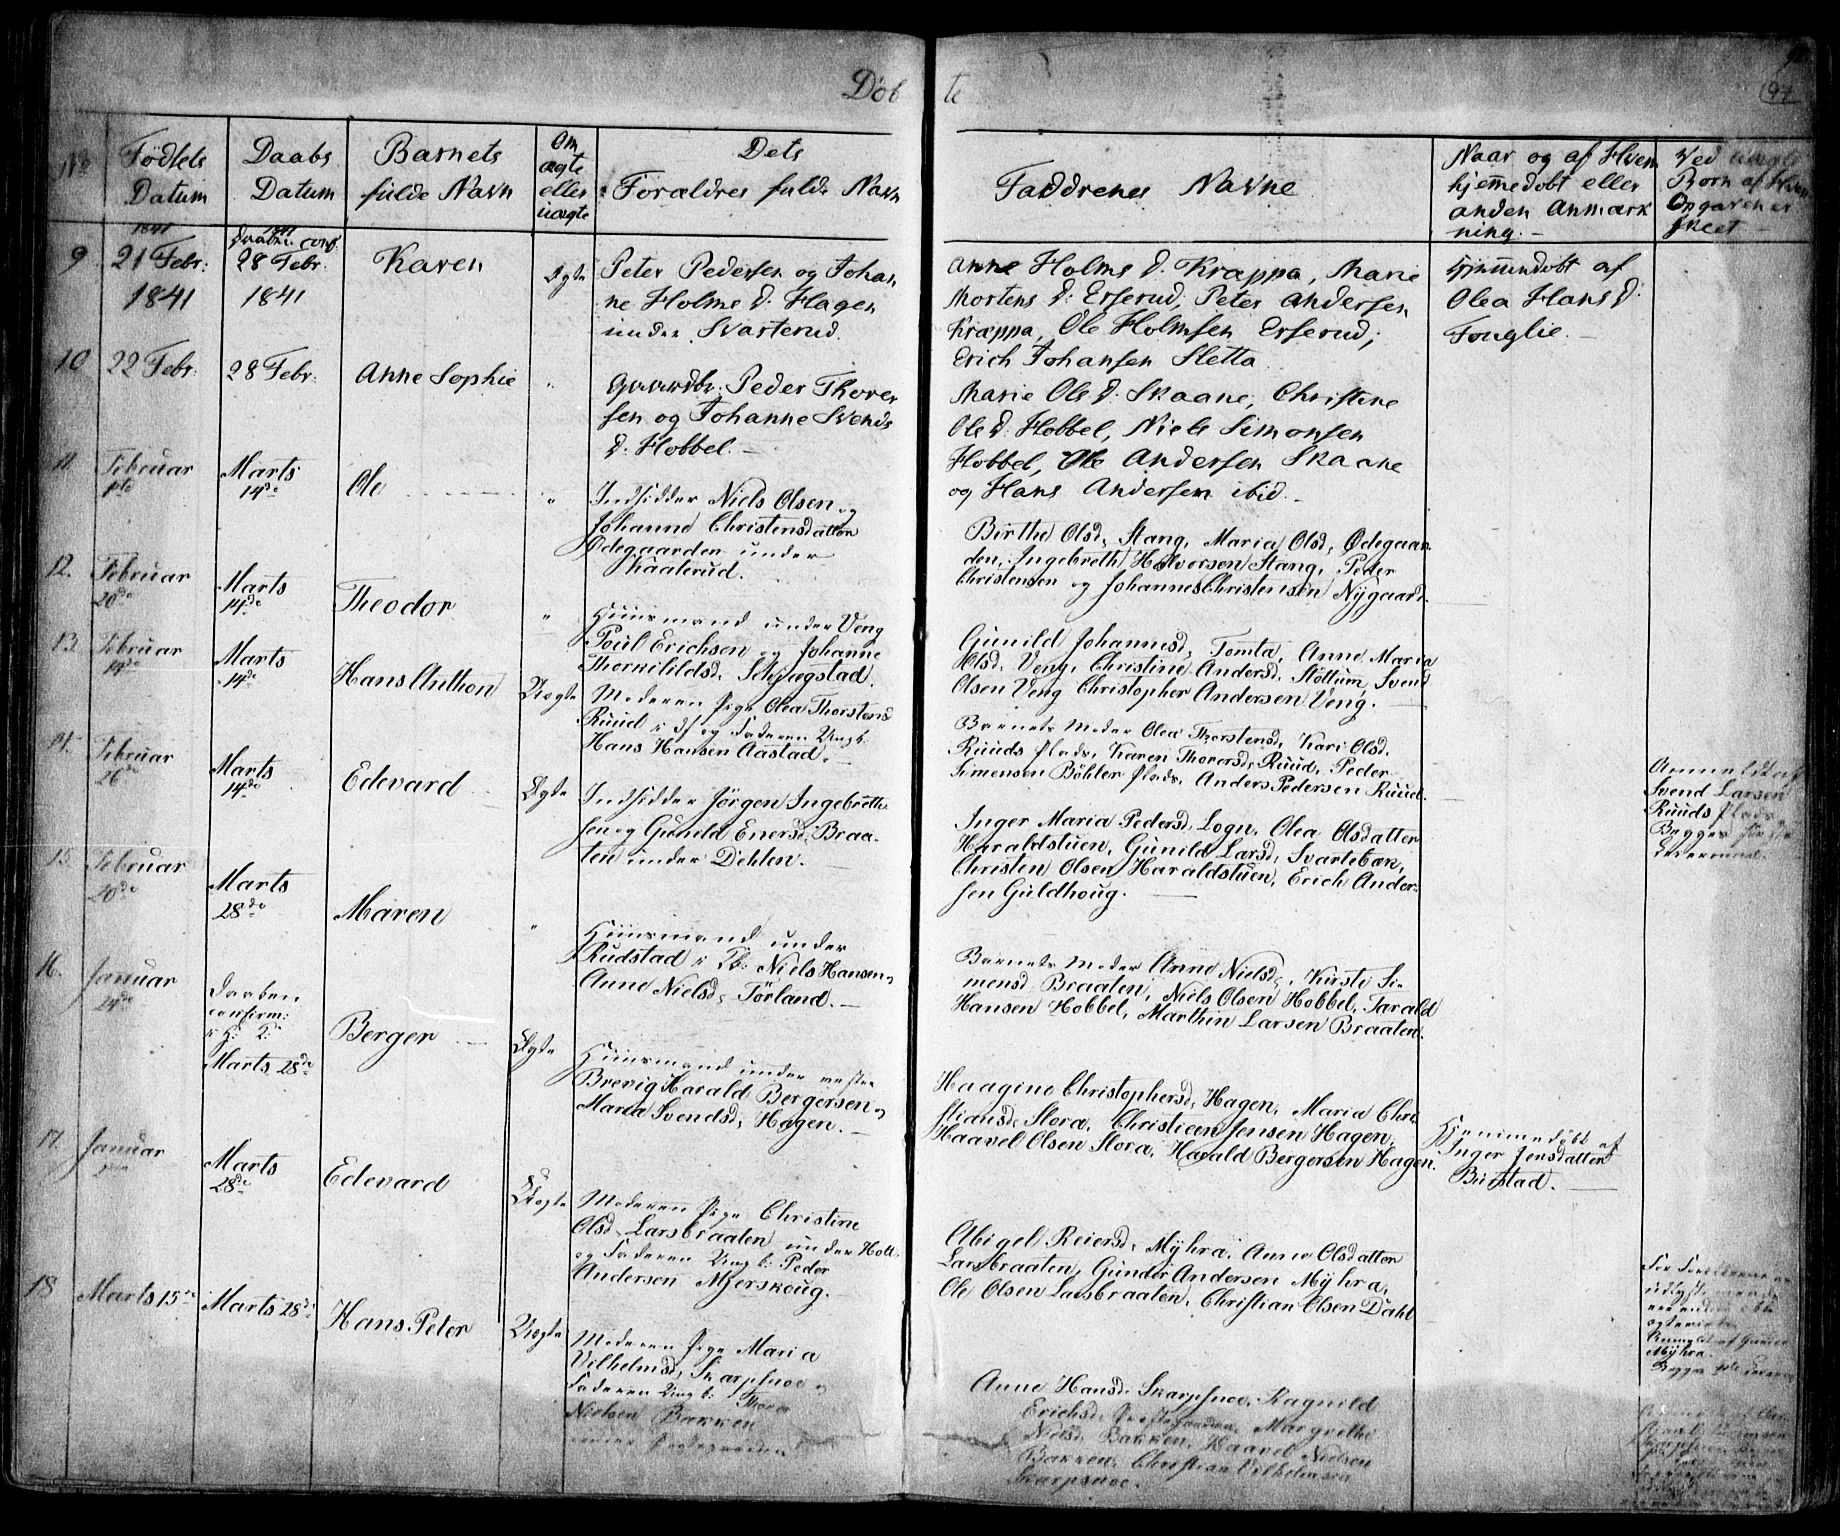 Døbte
94
No
Fødsels Datum
Daabs Datum
Barnets fulde Navn
Om ægte eller uægte
Dets Forældres fulde Navn
Faddrenes Navne
Naar og af Hvem hjemmedøbt eller anden Anmærkning.
Ved uægte Børn af Hvem Opgaven er skeet
9
1841
21 Febr:
1841
1841
Daaben conf.
28 Febr.
1841
Karen
Ægte
Peter Pedersen og Johan
ne Holms D. Hagen
under Svarterud.
Anne Holms D. Krappa, Marie
Mortens D: Erserud, Peter Andersen
Krappa, Ole Holmsen Erserud,
Erich Johansen Sletta
Hjemmendøbt af
Olea Hans D:
Fouglie.
10
22 Febr.
28 Febr:
Anne Sophie
"
Gaardbr. Peder Thorer
sen og Johanne Svends
D. Hobbel.
Marie Ole D: Skaane, Christine
Ole D. Hobbel, Niels Simonsen
Hobbel, Ole Andersen Skaane
og Hans Andersen ibid.
11.
Februar
1ste
Marts
14de
Ole
"
Indsidder Niels Olsen og
Johanne Christensdatter
Ødegaarden under
Kaaterud.
Birthe Olsd, Stang, Maria Olsd, Ødegaar
den, Ingebreth Halvorsen Stang, Peder
Christensen og Johannes Christensen Nygaard.
12.
Februar
20de
Marts
14de
Theodor
"
Huusmand under Veng
Poul Erichsen og Johanne
Thorkilsd, Schjagstad.
Gunild Johannesd, Tomta, Anne Maria
Olsd. Veng, Christine Andersd, Støttum, Svend
Olsen Veng Christopher Andersen Veng.
13.
Februar
14de
Marts
14de
Hans Anthon
Uægte
Moderen Pige Olea Thorstensd
Ruud i Df og Faderen Ungk.
Hans Hansen Aastad.
Barnets Moder Olea Thorstensd, Kari Olsd.
Ruuds Plads, Karen Thorersd, Ruud, Peder
Simensen Böhler Plads, Anders Pedersen Ruud.
Anmeldt af
Svend Larsen
Ruuds Plads,
Begges første
Leiermaal.
14.
Februar
26de
Marts
14de
Edevard
Ægte
Indsidder Jørgen Ingebreth
sen og Gunild Enersd, Braa
ten under Dehlen.
Inger Maria Pedersd, Logn, Olea Olsdatter
Haraldstuen, Gunild Larsd, Svartebæn,
Christen Olsen Haraldstuen, Erich Ander
sen Guldhoug.
15.
Februar
20de
Marts
28de
Maren
"
Huusmand under
Rudstad i Tb: Niels Hansen og
Anne Nielsd, Törland.
Barnets Moder Anne Nielsd, Kirsti Si
mensd Braaten, Niels Olsen Hobbel, Tarald
Hansen Hobbel, Marthin Larsen Braaten.
16.
Januar
24de
Daaben
confirm:
i H: K:
Marts 28de
Berger
Ægte
Huusmand under vestre
Brevig Harald Bergersen og
Maria Svendsd, Hagen.
Haagine Christophersd, Hagen, Maria Chri
stiansd, Slora, Christian Jensen Hagen,
Haavel Olsen Slora, Harald Bergersen Hagen.
Hjemmedøbt af
Inger Jensdatter
Burstad.
17.
Januar
Marts
28de
Edevard
Uægte
Moderen Pige Christine
Olsd, Larsbraaten under Holt
og Faderen Ungk: Peder
Andersen Mjerskoug.
Abigel Reiersd, Myhra, Anne Olsdatter
Larsbraaten, Gunder Andersen Myhra,
Ole Olsen Larsbraaten, Christian Olsen Dahl
For Forældrene
Anmeldt af Gunder
Myhra.
Begges 1ste
18
Marts 15de
Marts 28de
Hans Peter
Uægte
Moderen Pige Maria
Vilhelmsd, Skarpsnoe og
Faderen Ungk: Thore
Nielsen Bakken
under Præstegaarden
Anne Hansd, Skarpsnoe, Ragnild
Erichsd, Præstegaarden, Margrethe
Nielsd, Bakken, Haavel Nielsen
Bakken, Christian Vilhelmsen
Skarpsnoe.